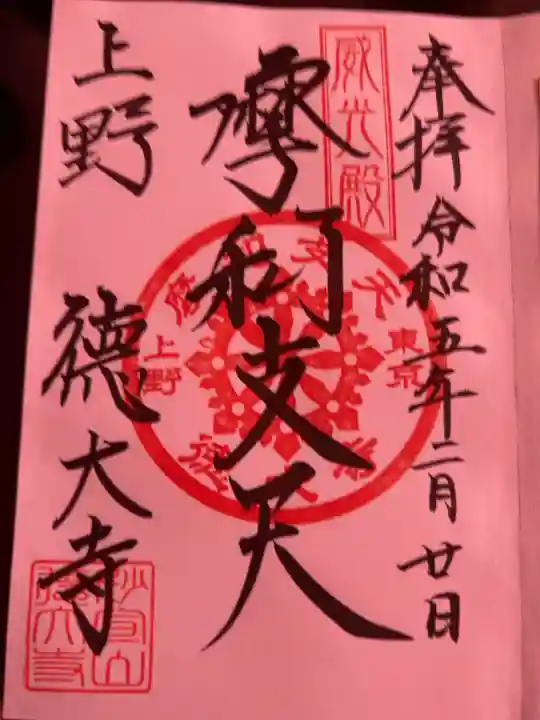 奉拝 令和五年二月廿日
威光殿
摩利支天
摩利支天
東京
上野
徳大寺
上野 徳大寺
妙宣山
徳大寺